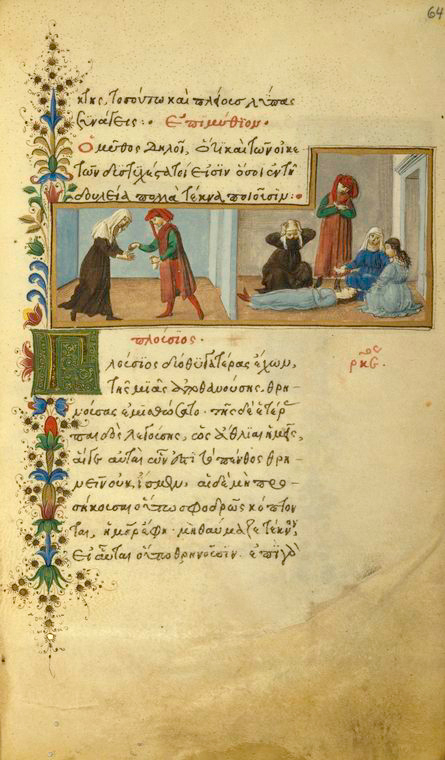 64
κτης, τοσούτω και πλείους λύπας
συνάγεις: Ἐπιμύθιον.
Ὁ μῦθος δηλοῖ, ὅτι καὶ τῶν οἰκε
τῶν δυστυχέστατοί εἰσιν ὅσοι ἐν τῇ
δουλεία πολλὰ τέκνα ποιοῦσιν:
πλούσιος.
Πλούσιος δύο θυγατέρας ἔχων,
τῆς μιᾶς ἀποθανούσης, θρη-
νούσας ἐμισθώσατο. τῆς δὲ ἑτέρας
παιδὸς λεγούσης, ὡς ἄθλιαι ἡμεῖς,
αἵγε αὐταὶ ὧν ἐστι τὸ πένθος θρη-
νεῖν οὐκ ἴσμεν, αἱ δὲ μὴ προ-
σήκουσαι οὕτω σφοδρῶς κόπτον
ται, ἡ μήτηρ ἔφη· μὴ θαύμαζε τέκνον,
εἰ αὗται οὕτω θρηνοῦσιν. ἐπὶ γὰρ